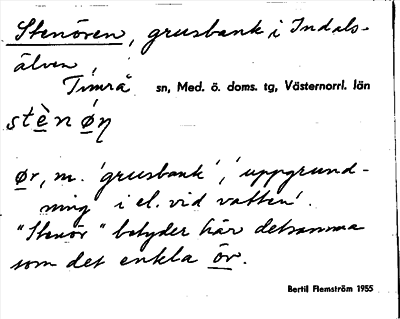 Stenören, grusbank i Indals-
älven,
Timrå sn, Med. ö. doms. tg, Västernorrl. län
stèn ǿŋ
ør, m. 'grusbank', 'uppgrund-
ning i el. vid vatten'.
"Stenör" betyder här detsamma
som det enkla ör.
Bertil Flemström 1955